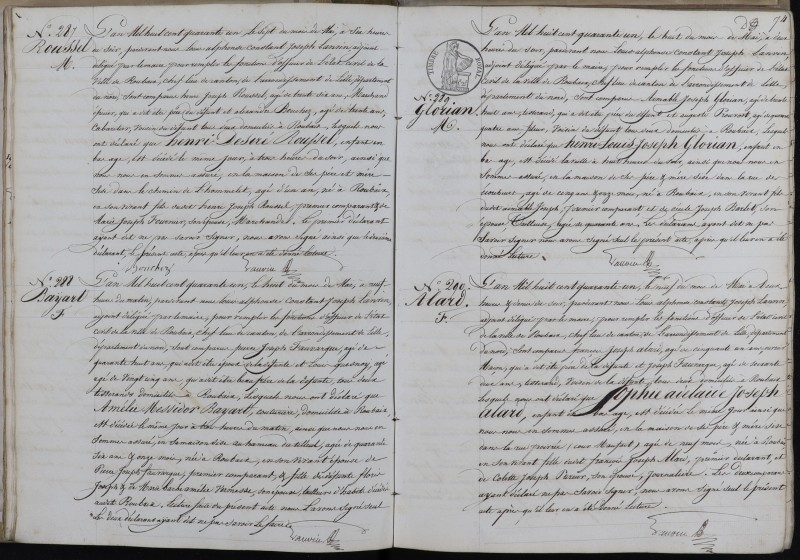 N.° 287
Roussel
M.
L'an Mil huit cent quarante un, le sept du mois de Mai, à Six heures
du soir, pardevant nous Louis alphonse Constant Joseph Lauvin, adjoint
délégué par le maire pour remplir les fonctions d'officier de l'état civil de la
Ville de Roubaix, chef lieu de canton, de l'arrondissement de Lille, département
du nord, Sont comparus henri Joseph Roussel, agé de trente six ans, Marchand
épicier, qui a dit être père du défunt et alexandre Bouchez, agé de trente ans,
Cabaretier, Voisin du défunt tous deux domiciliés à Roubaix, Lesquels nous
ont déclaré que henri Desiré Roussel, enfant en
bas age, est décédé le même jour, à trois heures du soir, ainsi que
nous nous en sommes assuré, en la maison de Ses père et mère
Sise dans le chemin de l'hommelet, agé d'un an, né à Roubaix,
en son vivant fils dudit henri Joseph Roussel, premier comparant, & de
Marie Joseph Fournier, son épouse, Marchande. Le premier déclarant
ayant dit ne pas savoir Signer, nous avons Signé ainsi que le deuxième
déclarant, le présent acte, après qu'il leur en a été donné lecture.
Bouchez Lauvin
N.° 288
Bayart
F.
L'an Mil huit cent quarante un, le huit du mois de Mai, à neuf
heures du matin, pardevant nous Louis alphonse Constant Joseph Lauvin,
adjoint délégué par le maire, pour remplir les fonctions d'officier de l'état
civil de la ville de Roubaix, chef lieu de canton, de l'arrondissement de Lille,
département du nord, Sont comparus pierre Joseph Fauvarque, agé de
quarante huit ans, qui a dit être époux de la défunte et Louis quesnoy, agé
de vingt cinq ans, qui a dit être beau frère de la défunte, tous deux
tisserands domiciliés à Roubaix, Lesquels nous ont déclaré que
Amélie Messidor Bayart, couturière, domiciliée à Roubaix
est décédée le même jour à heures du matin, ainsi que nous nous en
Sommes assuré, en sa maison Sise au hameau du tilleul, agée de quarante
six ans & onze mois, née à Roubaix, en son vivant épouse de
Pierre Joseph Fauvarque, premier comparant, & fille des défunts
Joseph & de Marie
audit Roubaix. Lecture faite du présent acte nous l'avons Signé seul
les deux déclarans ayant dit ne pas savoir le faire.
Lauvin
74
N.° 289
Glorian
M.
L'an Mil huit cent quarante un, le huit du mois de Mai, à
heures du soir, pardevant nous Louis alphonse Constant Joseph Lauvin
adjoint délégué par le maire, pour remplir les fonctions d'officier de l'état
civil de la ville de Roubaix, chef lieu de canton de l'arrondissement de Lille,
département du nord, Sont comparus Aimable Joseph Glorian, agé de trente
ans, tisserand, qui a dit être père du défunt et auguste
quatre ans, fileur, Voisin du défunt tous deux domiciliés à Roubaix, Lesquels
nous ont déclaré que henri Louis Joseph Glorian, enfant en
bas age, est décédé à huit heures du soir, ainsi que nous nous en
Sommes assuré, en la maison de Ses père & mère Sise dans la rue de
agé de cinq ans & onze mois, né à Roubaix, en son vivant fils
dudit aimable Joseph, premier comparant, et de Cécile Joseph Barlet, son
épouse, agée de quarante ans. Les déclarans ayant dit ne pas
Savoir Signer nous avons Signé seul le présent acte, après qu'il leur en a été
donné lecture.
Lauvin
N.° 290
Alard
F.
L'an Mil huit cent quarante un, le neuf du mois de Mai à
heures du soir, pardevant nous Louis alphonse Constant Joseph Lauvin
adjoint délégué par le maire, pour remplir les fonctions d'officier de l'état civil
de la ville de Roubaix, chef lieu de canton de l'arrondissement de Lille département
du nord, Sont comparus françois Joseph alard, agé de cinquante un ans,
qui a dit être père de la défunte et Joseph Fauvarque, agé de soixante
deux ans, tisserand, Voisin de la défunte, tous deux domiciliés à Roubaix
Lesquels nous ont déclaré que Sophie adelaide Joseph
alard, enfant en bas age, est décédée le même jour ainsi que
nous nous en sommes assuré, en la maison de Ses père & mère Sise
dans la rue agée de neuf mois, née à Roubaix
en son vivant fille dudit françois Joseph Alard, premier déclarant, et
de Colette Joseph son épouse, Journalière. Les deux comparans
ayant déclaré ne pas Savoir Signer, nous avons Signé seul le présent
acte après qu'il leur en a été donné lecture.
Lauvin